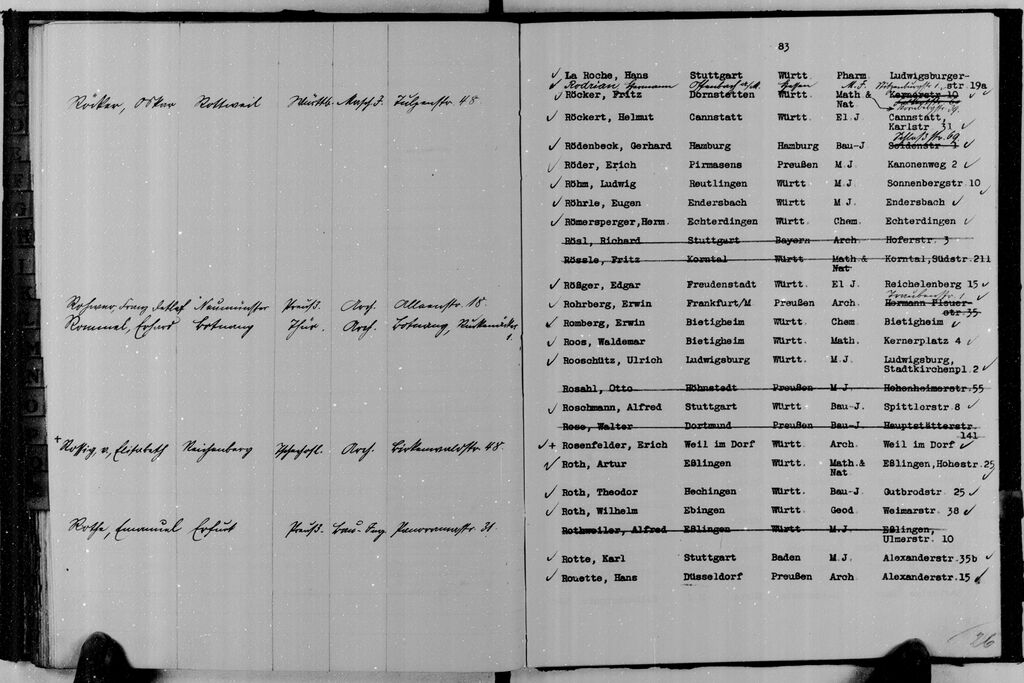 Röcker, Oskar Rottweil Württb. Masch.I. Tulpenstr. 48
Rohwer, Franz, Detlef Neumünster Preuß. Arch. Alleenstr. 18.
Rommel, Erhard Botnang Thür. Arch. Botnang,
+ Rossig, v, Elisabeth Reichenberg Arch. Birkenwaldstr. 48.
Rothe, Emanuel Erfurt Preuß. Bau-Ing. Panoramastr. 31.
83
✓ La Roche, Hans Stuttgart Württ. Pharm. Ludwigsburger-
✓ Rodrian Hermann Offenbach a/M. Hessen M.I. str 19a
✓ Röcker, Fritz Dornstetten Württ. Math & Kernerstr 10
Nat
✓ Röckert, Helmut Cannstatt Württ. El J Cannstatt,
Karlstr 31 ✓
Schloßstr. 69
✓ Rödenbeck, Gerhard Hamburg Hamburg Bau-J Seidenstr 4 ✓
✓ Röder, Erich Pirmasens Preußen M J. Kanonenweg 2 ✓
✓ Röhm, Ludwig Reutlingen Württ M J. Sonnenbergstr 10 ✓
✓ Röhrle, Eugen Endersbach Württ M J. Endersbach ✓
✓ Römersperger,Herm. Echterdingen Württ. Chem. Echterdingen ✓
Rösl, Richard Stuttgart Bayern Arch. Hoferstr. 3
Rössle, Fritz Korntal Württ Math & Korntal,Südstr.211
Nat
✓ Rößger, Edgar Freudenstadt Württ El J. Reichelenberg 15 ✓
Traubenstr. 1 ✓
✓ Rohrberg, Erwin Frankfurt/M Preußen Arch. Hermann Fleuer-
str.35
✓ Romberg, Erwin Bietigheim Württ Chem Bietigheim ✓
✓ Roos, Waldemar Bietigheim Württ Math. Kernerplatz 4 ✓
✓ Rooschütz, Ulrich Ludwigsburg Württ. M J. Ludwigsburg,
Stadtkirchenpl.2 ✓
Rosahl, Otto Höhnstedt Preußen M J Hohenheimerstr.55
✓ Roschmann, Alfred Stuttgart Württ Bau-J. Spittlerstr 8 ✓
Rose, Walter Dortmund Preußen Bau-J Hauptstätterstr
141
✓ + Rosenfelder, Erich Weil im Dorf Württ Arch. Weil im Dorf ✓
✓ Roth, Artur Eßlingen Württ. Math.& Eßlingen,Hohestr.25
Nat ✓
✓ Roth, Theodor Hechingen Württ. Bau-J Gutbrodstr 25 ✓
✓ Roth, Wilhelm Ebingen Württ Geod Weimarstr 38 ✓
Rothweiler, Alfred Eßlingen Württ M.J Eßlingen,
Ulmerstr. 10
✓ Rotte, Karl Stuttgart Baden M J. Alexanderstr.35b ✓
✓ Rouette, Hans Düsseldorf Preußen Arch Alexanderstr.15 ✓
26